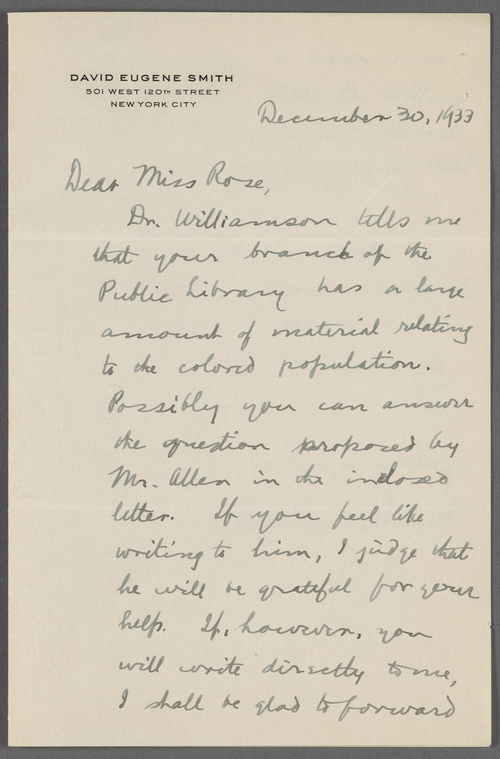 DAVID EUGENE SMITH
501 WEST 120TH STREET
NEW YORK CITY
December 30, 1933
Dear Miss Rose,
Dr. Williamson tells me
that your branch of the
Public Library has a large
amount of material relating
to the colored population.
Possibly you can answer
the question proposed by
Mr. Allen in the inclosed
letter. If you feel like
writing to him, I judge that
he will be grateful for your
help. If, however, you
will write directly to me,
I shall be glad to forward